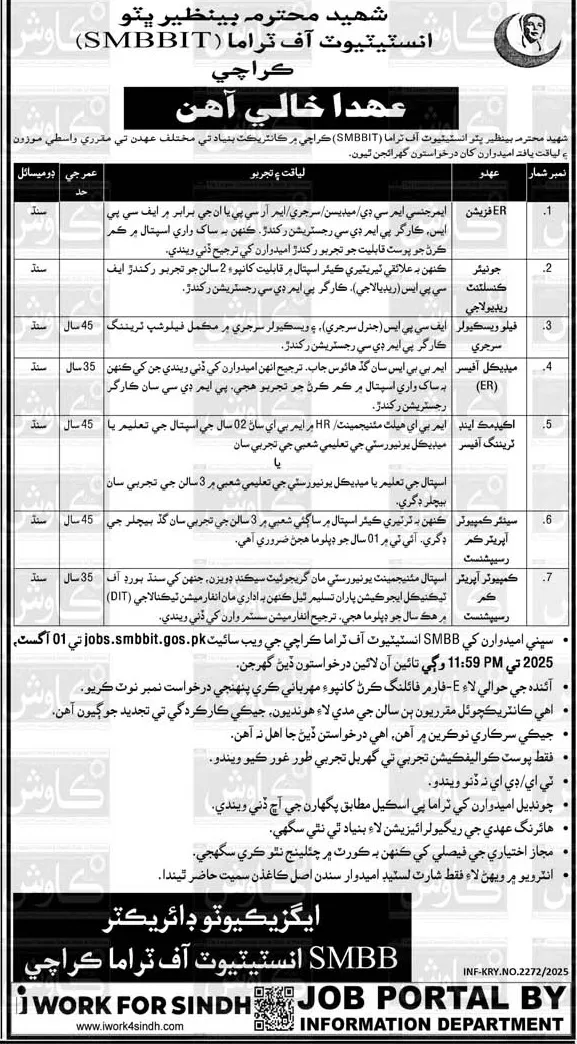 شهيد محترمه بينظير ڀٽو
انسٽيٽيوٽ آف ٽراما (SMBBIT)
ڪراچي
عهدا خالي آهن
شهيد محترمه بينظير ڀٽو انسٽيٽيوٽ آف ٽراما (SMBBIT) ڪراچي ۾ ڪانٽريڪٽ بنياد تي مختلف عهدن تي مقرري واسطي موزون
۽ لياقت يافته اميدوارن کان درخواستون گهرائجن ٿيون.
نمبر شمار عهدو لياقت ۽ تجربو عمر جي حد ڊوميسائل
1. ER فزيشن ايمرجنسي ايم سي ڊي/ ميڊيسن/ سرجري/ ايم آر سي پي يا ان جي برابر ۾ ايف سي پي سنڌ
ايس، ڪارگر پي ايم ڊي سي رجسٽريشن رکندڙ. ڪنهن به ساک واري اسپتال ۾ ڪم
ڪرڻ جو پوسٽ قابليت جو تجربو رکندڙ اميدوارن کي ترجيح ڏني ويندي.
2. جونيئر ڪنسلٽنٽ ريڊيولاجي ڪنهن به علائقي ٽيريٽيري ڪيئر اسپتال ۾ قابليت کانپوءِ 2 سالن جو تجربو رکندڙ ايف سنڌ
سي پي ايس (ريڊيالاجي). ڪارگر پي ايم ڊي سي رجسٽريشن رکندڙ.
3. فيلو ويسڪيولر سرجري ايف سي پي ايس (جنرل سرجري)، ۽ ويسڪيولر سرجري ۾ مڪمل فيلوشپ ٽريننگ 45 سال سنڌ
ڪارگر پي ايم ڊي سي رجسٽريشن رکندڙ.
4. ميڊيڪل آفيسر (ER) ايم بي بي ايس سان گڏ هائوس جاب. ترجيح انهن اميدوارن کي ڏني ويندي جن کي ڪنهن 35 سال سنڌ
به ساک واري اسپتال ۾ ڪم ڪرڻ جو تجربو هجي. پي ايم ڊي سي سان ڪارگر
رجسٽريشن رکندڙ.
5. اڪيڊمڪ اينڊ ٽريننگ آفيسر ايم بي اي هيلٿ مئنيجمينٽ/ HR ۾ ايم بي اي سان 02 سال جي اسپتال جي تعليم يا 45 سال سنڌ
ميڊيڪل يونيورسٽي جي تعليمي شعبي جي تجربي سان
يا
اسپتال جي تعليم يا ميڊيڪل يونيورسٽي جي تعليمي شعبي ۾ 3 سالن جي تجربي سان
بيچلر ڊگري.
6. سينئر ڪمپيوٽر آپريٽر ڪم رسيپشنسٽ ڪنهن به ٽرٽيري ڪيئر اسپتال ۾ ساڳئي شعبي ۾ 3 سالن جي تجربي سان گڏ بيچلر جي 45 سال سنڌ
ڊگري. آئي ٽي ۾ 01 سال جو ڊپلوما هجڻ ضروري آهي.
7. ڪمپيوٽر آپريٽر ڪم رسيپشنسٽ اسپتال مئنيجمينٽ يونيورسٽي مان گريجوئيٽ سيڪنڊ ڊويزن، جنهن کي سنڌ بورڊ آف 35 سال سنڌ
ٽيڪنيڪل ايجوڪيشن پاران تسليم ٿيل ڪنهن به اداري مان انفارميشن ٽيڪنالاجي (DIT)
۾ هڪ سال جو ڊپلوما هجي. ترجيح انفارميشن سسٽم وارن کي ڏني ويندي.
• سڀني اميدوارن کي SMBB انسٽيٽيوٽ آف ٽراما ڪراچي جي ويب سائيٽ jobs.smbbit.gos.pk تي 01 آگسٽ،
2025 تي 11:59 PM وڳي تائين آن لائين درخواستون ڏيڻ گهرجن.
• آئنده جي حوالي لاءِ E-فارم فائلنگ ڪرڻ کانپوءِ مهرباني ڪري پنهنجي درخواست نمبر نوٽ ڪريو.
• اهي ڪانٽريڪچوئل مقرريون ٻن سالن جي مدي لاءِ هونديون، جيڪي ڪارڪردگي تي تجديد جوڳيون آهن.
• جيڪي سرڪاري نوڪرين ۾ آهن، اهي درخواستن ڏيڻ جا اهل نه آهن.
• فقط پوسٽ ڪواليفڪيشن تجربي تي گهربل تجربي طور غور ڪيو ويندو.
• ٽي اي/ ڊي اي نه ڏنو ويندو.
• چونڊيل اميدوارن کي ٽراما پي اسڪيل مطابق پگهارن جي آڇ ڏني ويندي.
• هائرنگ عهدي جي ريگيولرائيزيشن لاءِ بنياد ٿي نٿي سگهي.
• مجاز اختياري جي فيصلي کي ڪنهن به ڪورٽ ۾ چئلينج نٿو ڪري سگهجي.
• انٽرويو ۾ ويهڻ لاءِ فقط شارٽ لسٽيڊ اميدوار سندن اصل ڪاغذن سميت حاضر ٿيندا.
ايگزيڪيوٽو ڊائريڪٽر
SMBB انسٽيٽيوٽ آف ٽراما ڪراچي
INF-KRY.NO.2272/2025
i WORK FOR SINDH
www.iwork4sindh.com
JOB PORTAL BY
INFORMATION DEPARTMENT